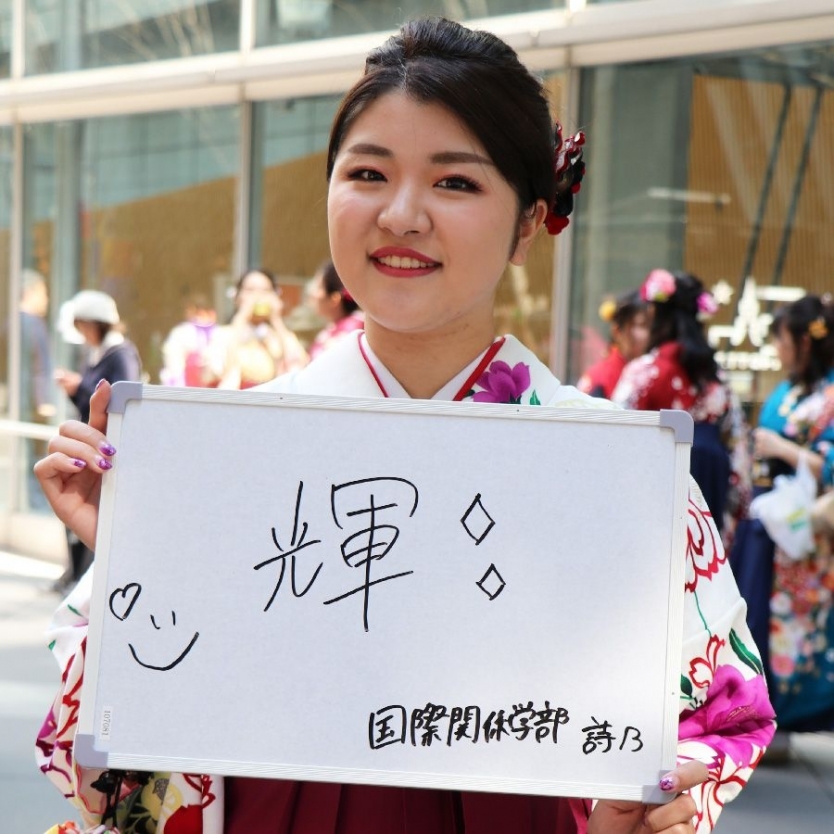 輝
国際関係学部 詩乃
107081